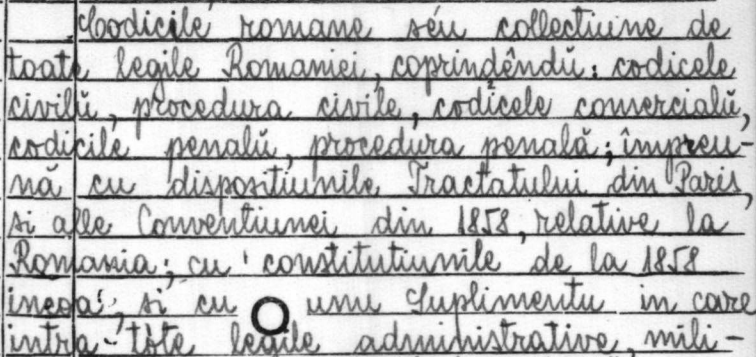 Codicile romane séu collectiune de
toate legile Romaniei, coprindêndŭ: codicele
civilŭ, procedura civile, codicele comercialŭ,
codicile penalŭ, procedura penală; împreu-
nă cu dispositiunile Tractatului din Paris,
si alle Conventiunei din 1858, relative la
Romania; cu constitutiunile de la 1858
incoa; si cu unu Suplimentu in care
intra tòte legile administrative, mili-